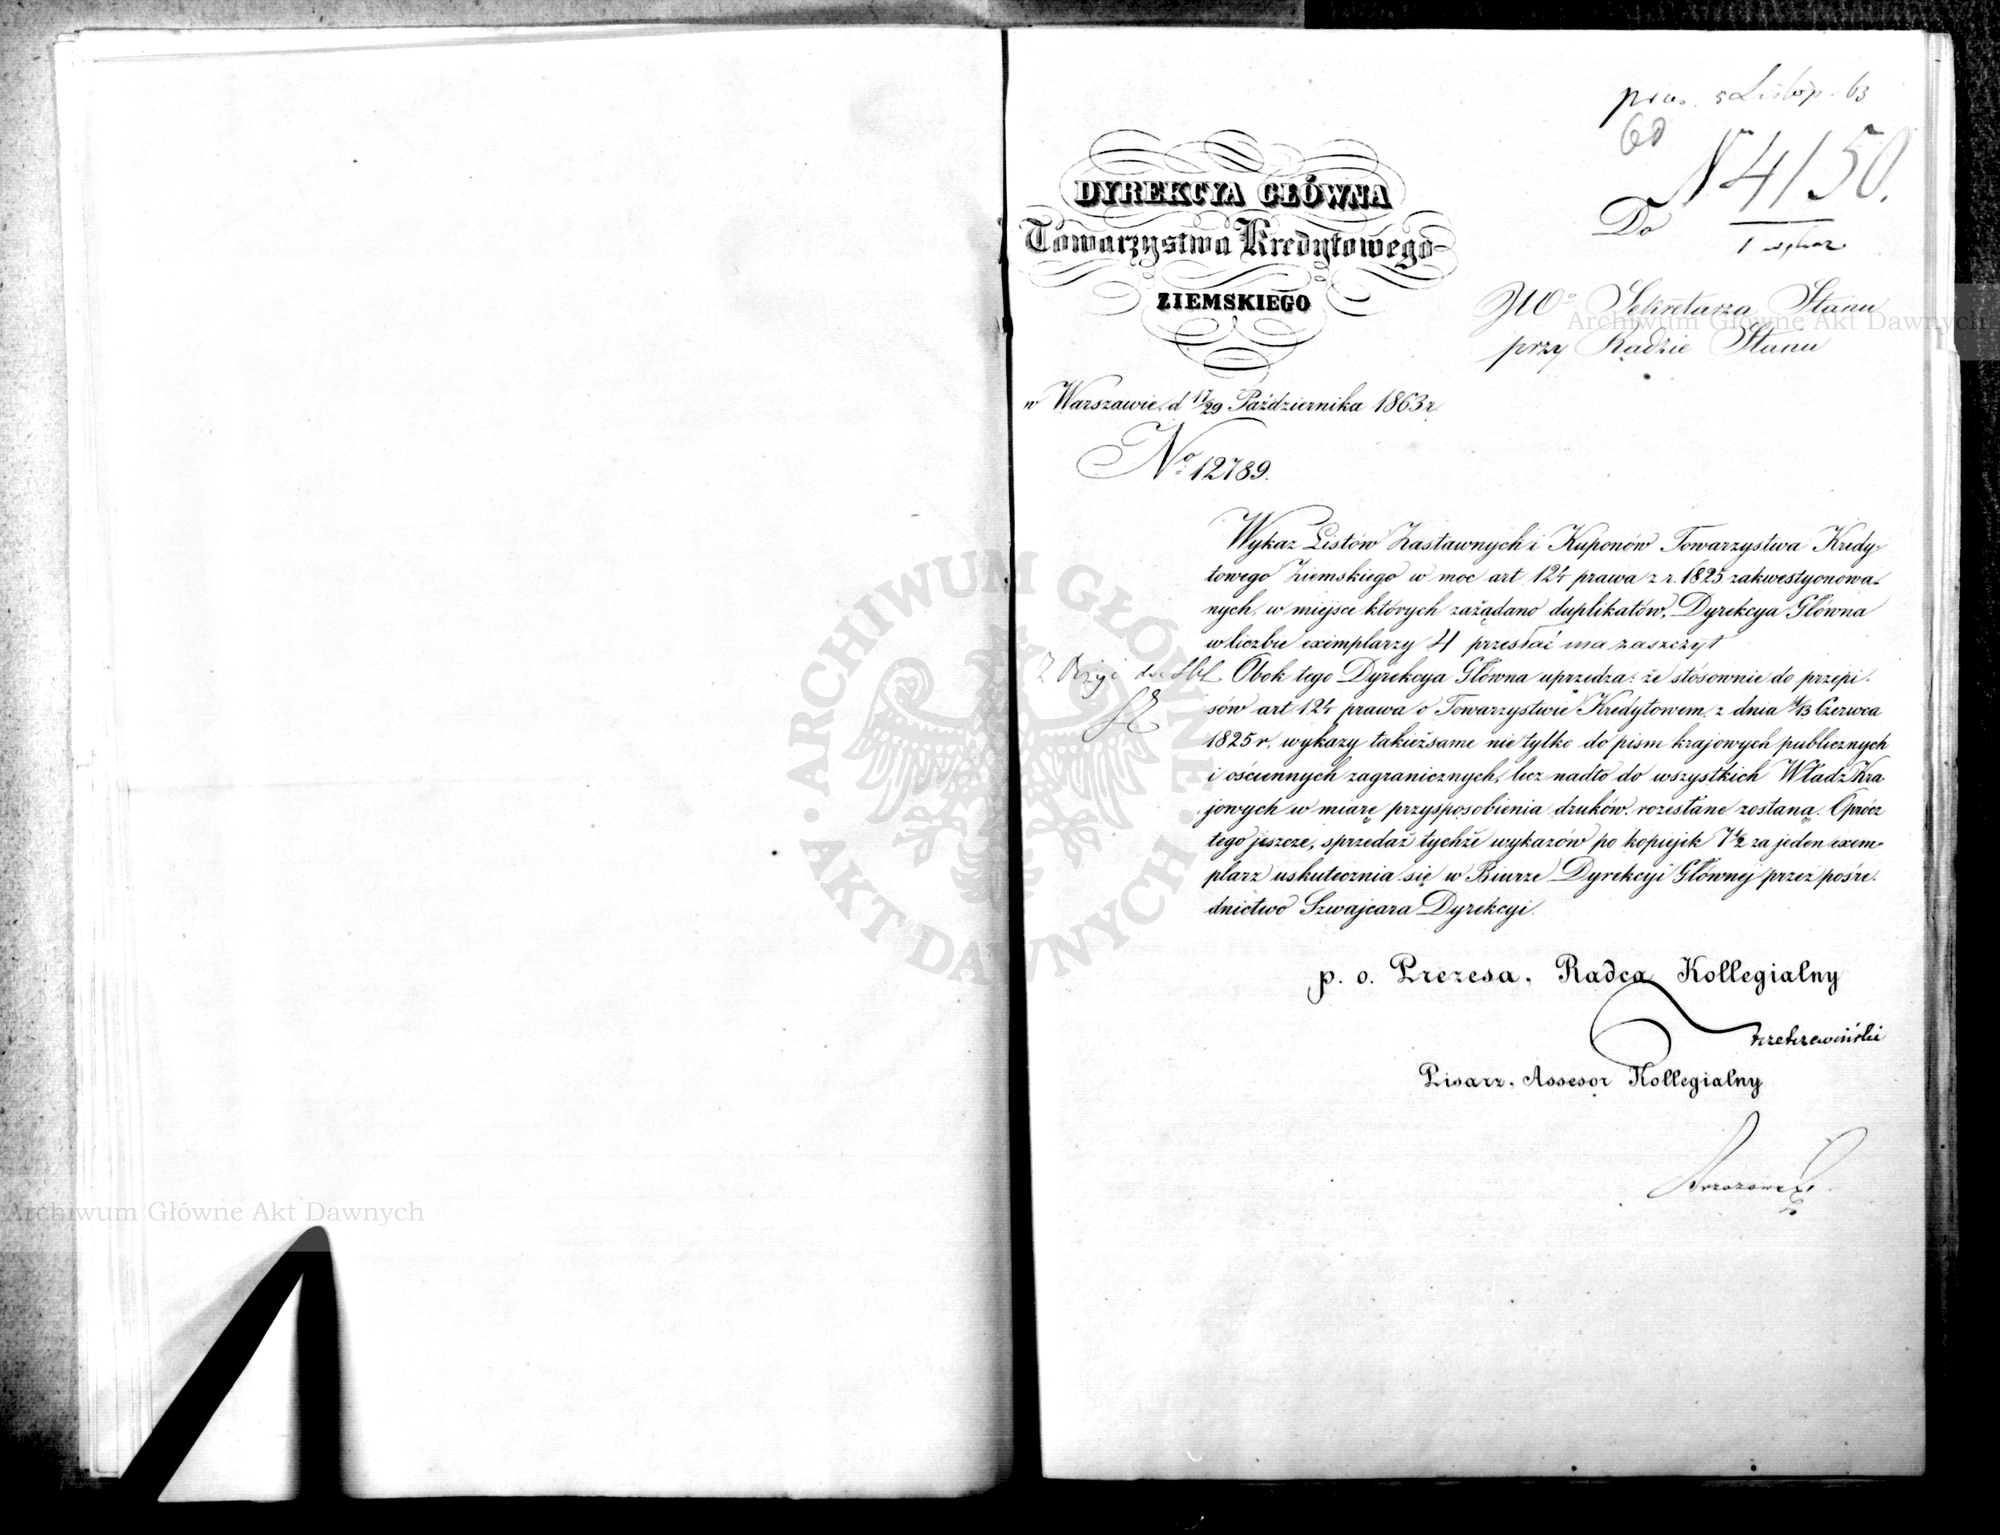 pras. 5 Listop. 63
60
N 4150.
1 wykaz
DYREKCYA GŁÓWNA
Towarzystwa Kredytowego
ZIEMSKIEGO
Do
JWo Sekretarza Stanu
przy Radzie Stanu
w Warszawie, d 17/29 Października 1863 r.
No 12789.
Wykaz Listów Zastawnych i Kuponów Towarzystwa Kredy-
towego Ziemskiego w moc art 124 prawa z r. 1825 zakwestyonowa-
nych, w miejsce których zażądano duplikatów, Dyrekcya Główna
w liczbie exemplarzy 4 przesłać ma zaszczyt
Obok tego Dyrekcya Główna uprzedza: że stósownie do przepi-
sów art 124 prawa o Towarzystwie Kredytowem z dnia 1/13 Czerwca
1825 r. wykazy takieżsame nie tylko do pism krajowych publicznych
i ościennych zagranicznych, lecz nadto do wszystkich Władz Kra-
jowych w miarę przysposobienia druków, rozesłane zostaną. Oprócz
tego jeszcze, sprzedaż tychże wykazów po kopiejek 7 1/2 za jeden exem-
plarz uskutecznia się w Biurze Dyrekcyi Głównej przez pośre-
dnictwo Szwajcara Dyrekcyi.
p. o. Prezesa, Radca Kollegialny
Trzetrzewiński
Pisarz, Assesor Kollegialny
ARCHIWUM GŁÓWNE AKT DAWNYCH
Archiwum Główne Akt Dawnych
Archiwum Główne Akt Dawnych